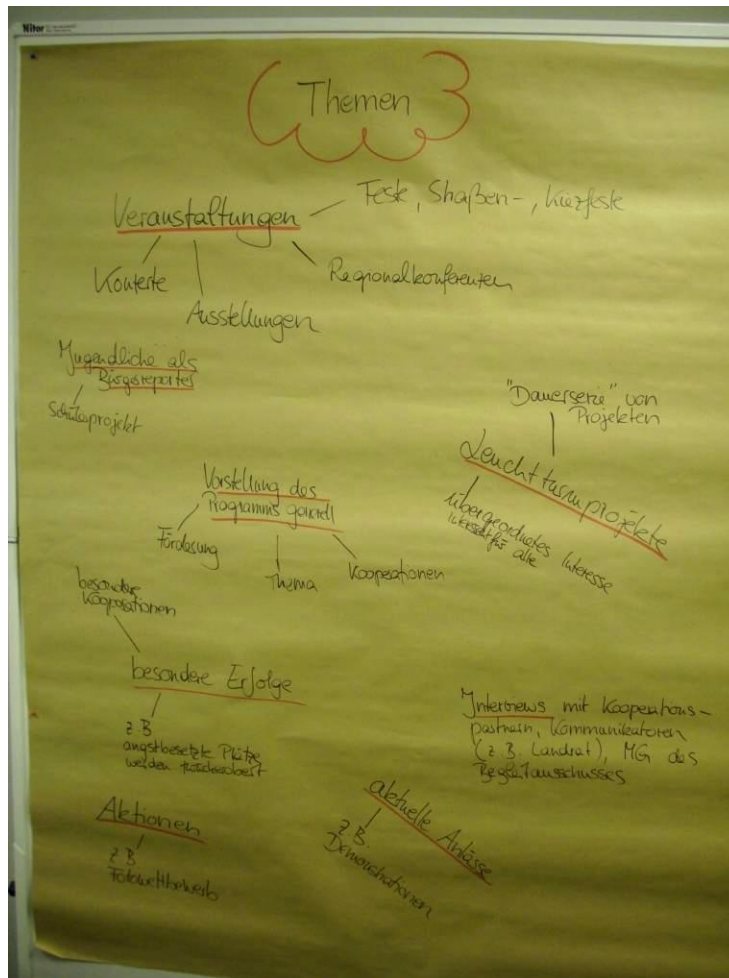 Nitor
Themen
Veranstaltungen
Feste, Straßen-, Kiezfeste
Konzerte
Ausstellungen
Regionalkonferenzen
Jugendliche als
Bürgerreporter
Schülerprojekt
"Dauerserie" von
Projekten
Leuchtturmprojekte
übergeordnetes Interesse
Interesse für alle
Vorstellung des
Programms generell
Förderung
Thema
Kooperationen
besondere
Kooperationen
besondere Erfolge
z.B
angstbesetzte Plätze
werden zurückerobert
Interviews mit Kooperations-
partnern, Kommunikatoren
(z.B. Landrat), MG des
Begleitausschusses
Aktionen
z.B
Fotowettbewerb
aktuelle Anlässe
z.B.
Demonstrationen